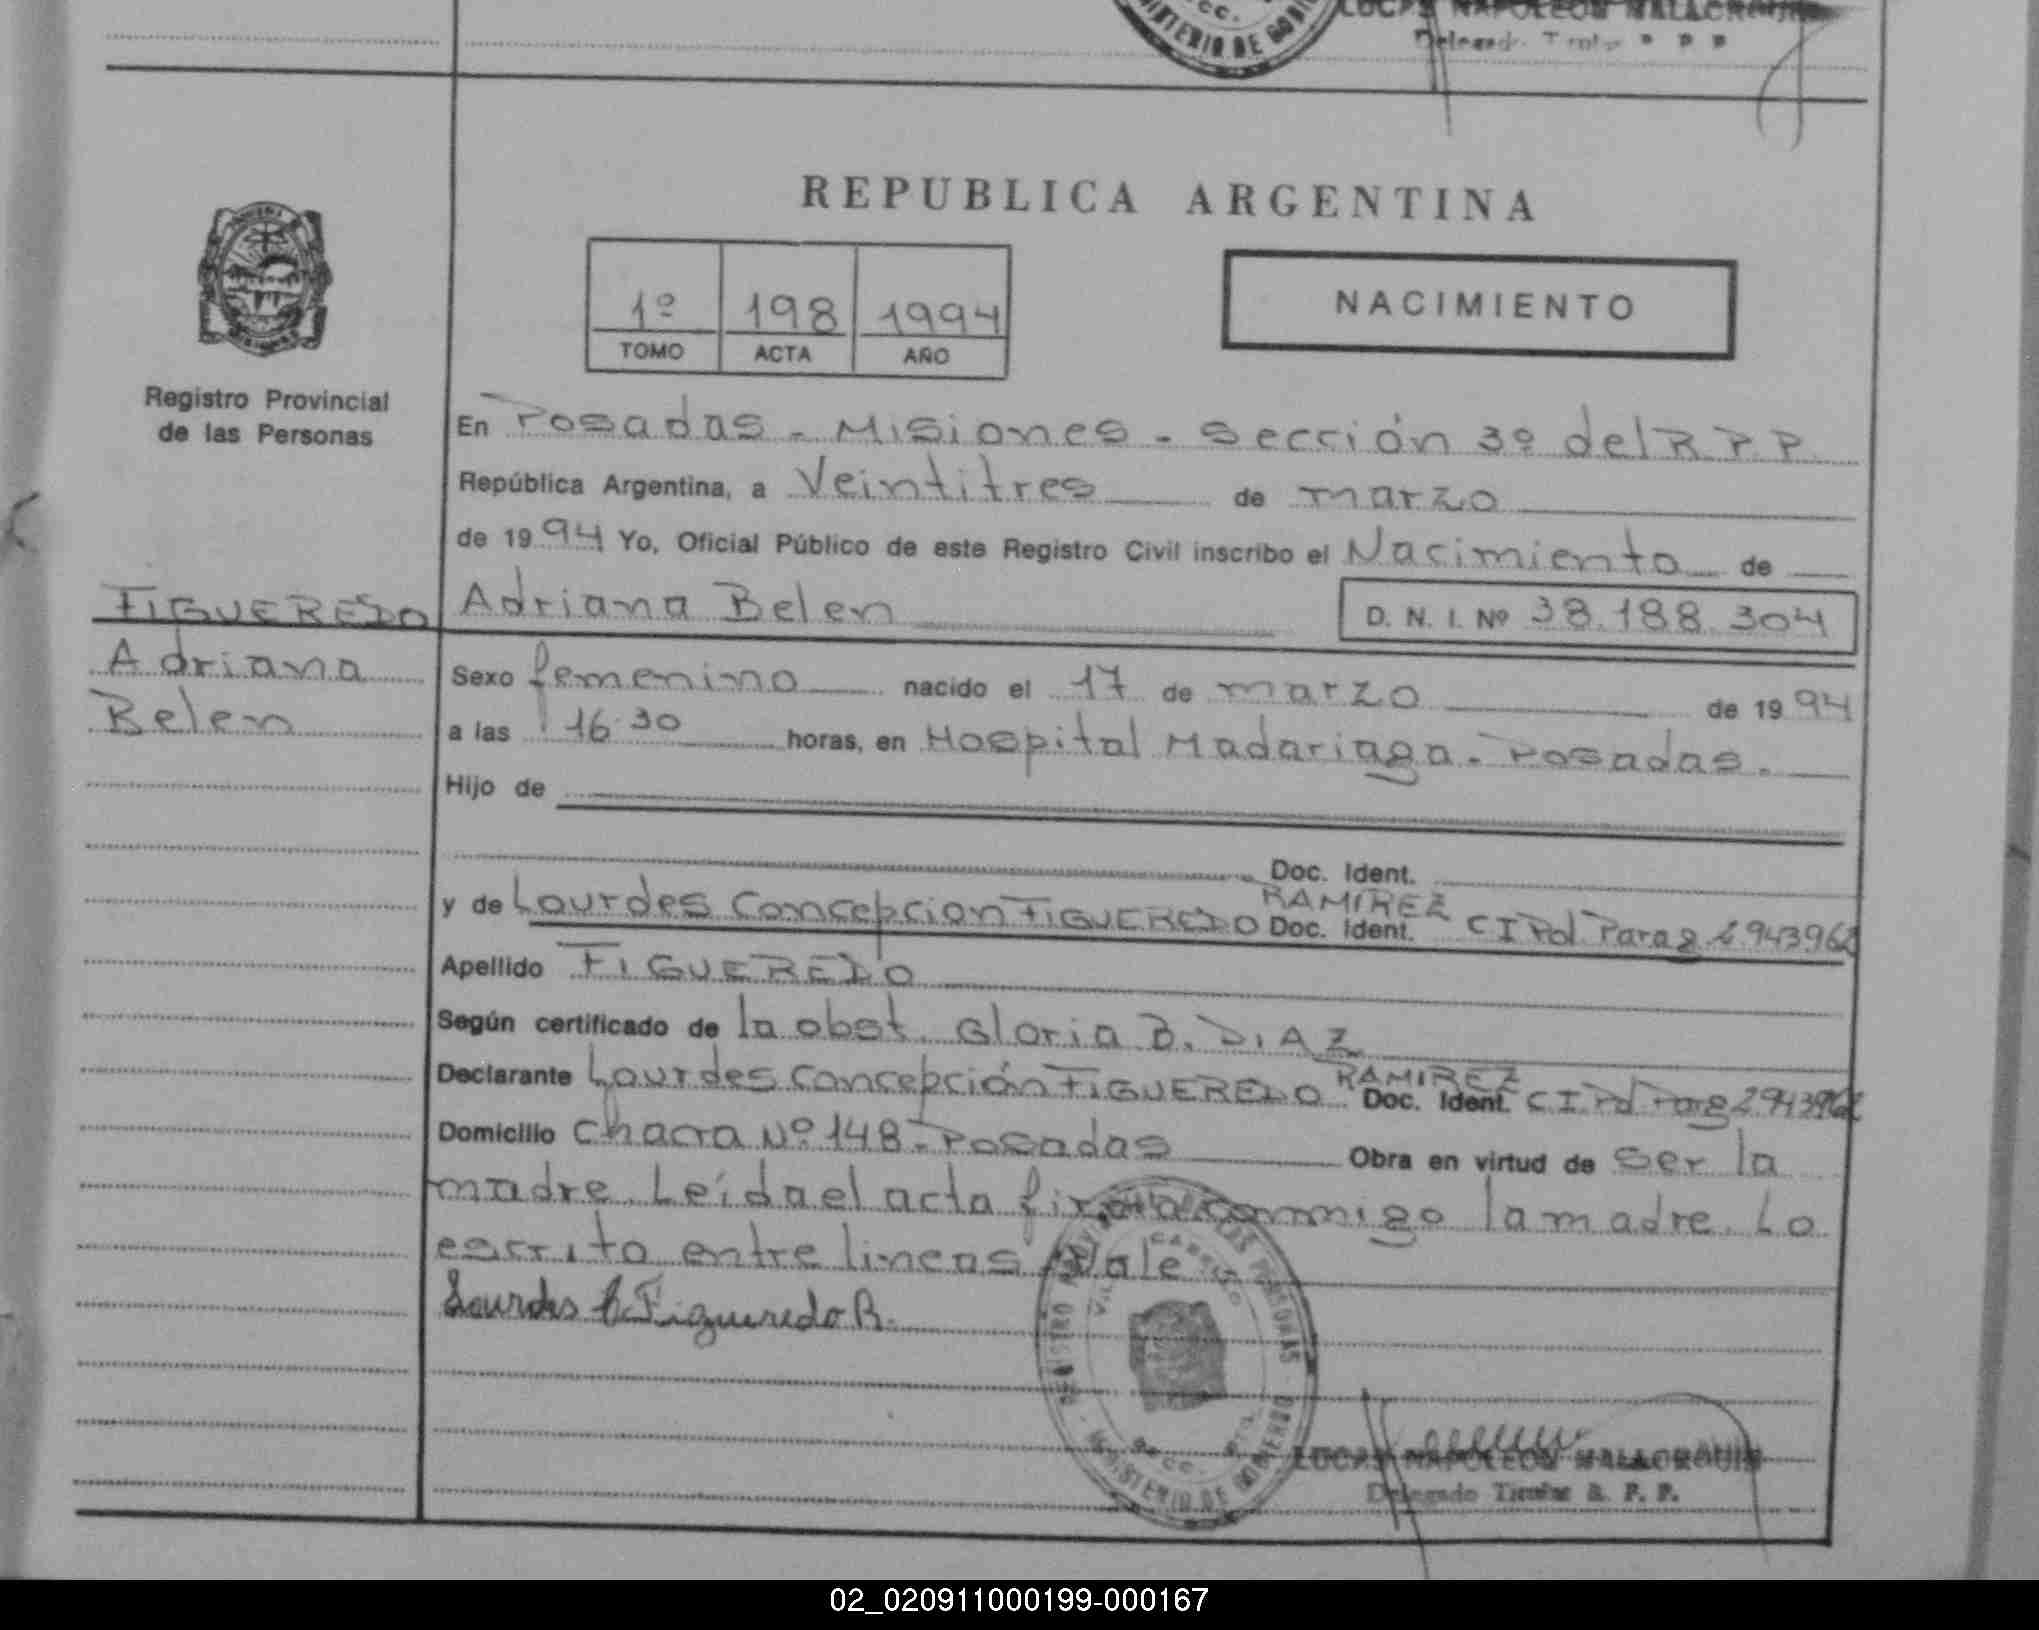 MINISTERIO DE GOBIERNO
LUCAS NAPOLEON MALACROUIS
Delegado Titular R. P. P.
REPUBLICA ARGENTINA
1º 198 1994
TOMO ACTA AÑO
NACIMIENTO
Registro Provincial
de las Personas
En Posadas - Misiones - Sección 3º del R. P. P.
República Argentina, a Veintitres de marzo
de 1994 Yo, Oficial Público de este Registro Civil inscribo el Nacimiento de
Adriana Belen D. N. I. Nº 38.188.304
FIGUEREDO
Adriana
Belen
Sexo femenino nacido el 17 de marzo de 1994
a las 16:30 horas, en Hospital Madariaga - Posadas.
Hijo de
Doc. Ident.
y de Lourdes Concepcion FIGUEREDO RAMIREZ Doc. Ident. C I Pol Parag 2.943962
Apellido FIGUEREDO
Según certificado de la obst. Gloria B. DIAZ
Declarante Lourdes Concepción FIGUEREDO RAMIREZ Doc. Ident. C I Pol Parag 2943962
Domicilio Chacra Nº 148 - Posadas Obra en virtud de ser la
madre. Leída el acta firma conmigo la madre. Lo
escrito entre lineas Vale
Lourdes C. Figueredo R.
REGISTRO PROVINCIAL DE LAS PERSONAS
MINISTERIO DE GOBIERNO
LUCAS NAPOLEON MALACROUIS
Delegado Titular R. P. P.
02_020911000199-000167